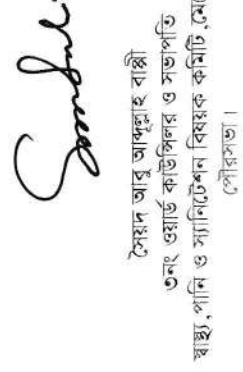 সৈয়দ আবু আব্দুল্লাহ বাপ্পী
৩নং ওয়ার্ড কাউন্সিলর ও সভাপতি
স্বাস্থ্য,পানি ও স্যানিটেশন বিষয়ক কমিটি,
পৌরসভা।